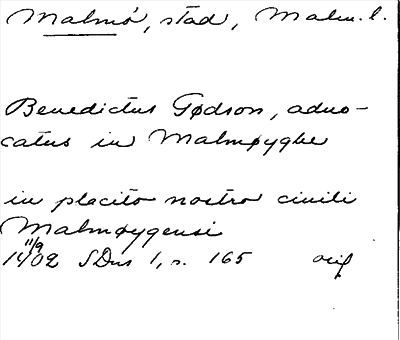 Malmö, stad, Malm. l.
Benedictus Gødson, advo-
catus in Malmøyghe
in placito nostro civili
Malmøygensi
11/9
1402 SDns 1, s. 165 orig